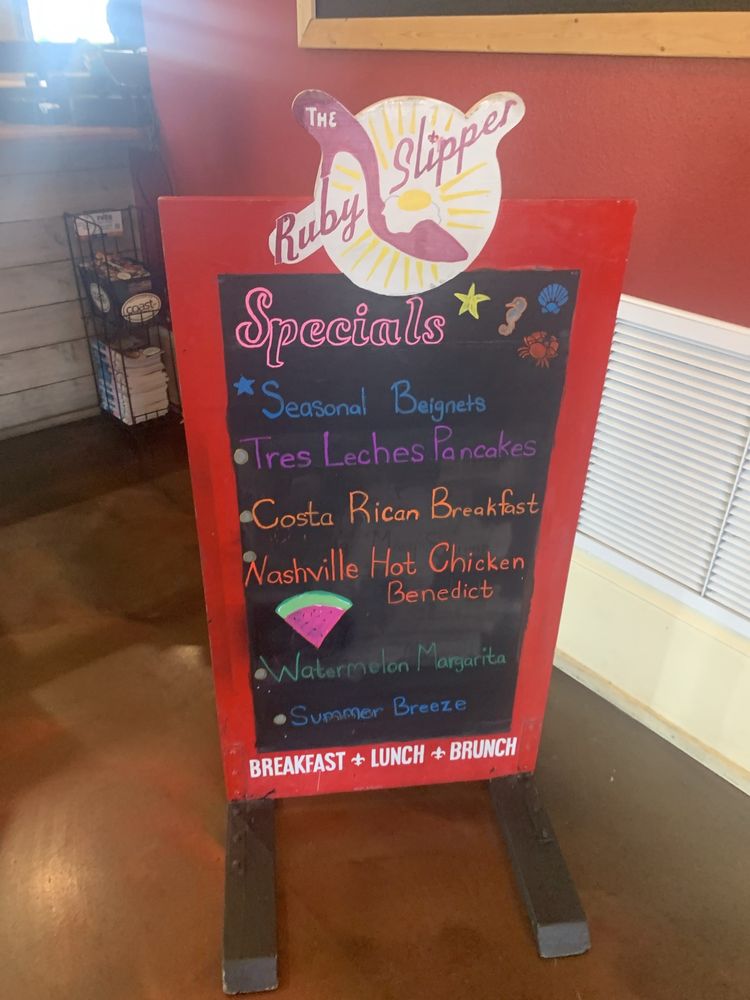 The
Ruby Slipper
Specials
Seasonal Beignets
Tres Leches Pancakes
Costa Rican Breakfast
Nashville Hot Chicken
Benedict
Watermelon Margarita
Summer Breeze
BREAKFAST ⚜ LUNCH ⚜ BRUNCH
coast